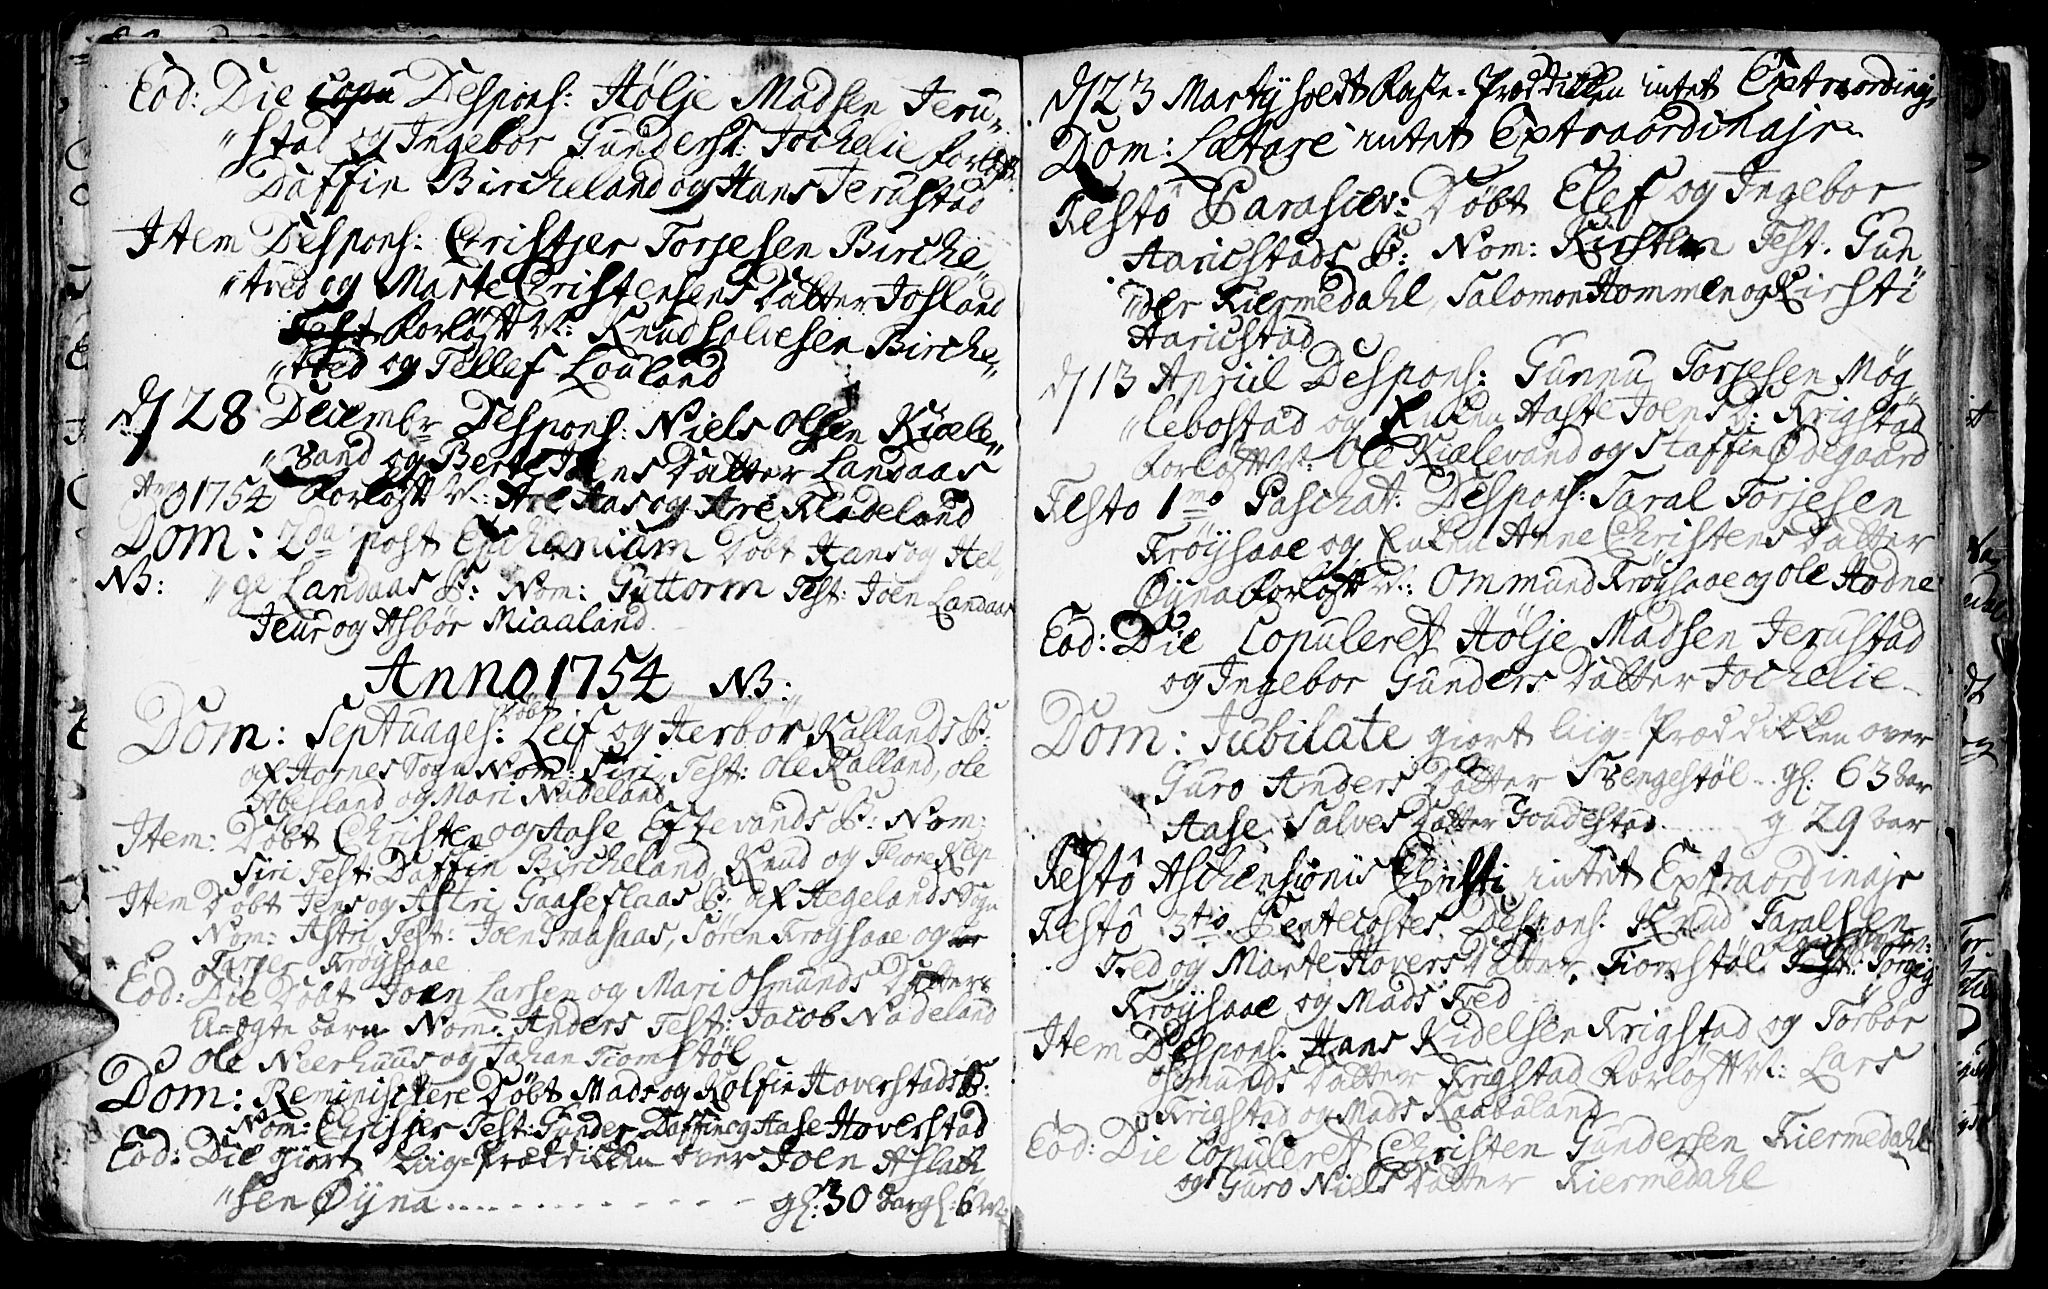 Eod: Die Copu Despons: Hølje Madsen Jeru„
„stad og Ingebor Gunders D: Jochelie forløft:
Daffin Bircheland og Hans Jerustad
Item Despons: Christjer Torjesen Birche„
„tved og Marte Christensens Datter Josland
Test forløfft M: Knud Solvesen Birche„
„tved og Tellef Louland
d/ 28 Decembr Despons: Niels Olsen Kiæle„
„vand og Berte Jens Datter Landaas
Ano 1754 forløfft M: Are Aas og Are Fladeland
Dom: 2da post Ephaniam Døbt Hans og Hel„
NB: „ge Landaas B: Nom: Guttorm Test: Joen Landaas
Jeur og Asbør Miaaland
Anno 1754 NB:
Dom: Septuages: Døbt Leif og Herbor Kallands B:
af Hornes Sogn Nom: Siri, Test: Ole Kalland, Ole
Abesland og Mari Nadeland
Item: Døbt Christen og Aase Eftevands B: Nom:
Siri Test: Daffin Bircheland, Knud og Tore Klep
Item Døbt Jens og Astri Gaaseflaas B: af Hegelands Sogn
Nom: Astri Test: Joen Traasaas, Søren Frøysaae og
Tarjer Frøysaae
Eod: Die Døbt Joen Larsen og Mari Osmunds Datters
U-ægte barn Nom: Anders Test: Jacob Nadeland
Ole Neerhuus og Johan Tiomstøl
Dom: Reminiscere Døbt Mads og Rolfin Hoverstads B:
Nom: Christjer Test: Gunder, Daffin og Aase Hoverstad
Eod: Die giort Liig-Prædicken over Joen Aslach„
„sen Øyna . . . . . . . . . . gl: 30 aar gl: 6 M.
d/ 23 Marty holdt Faste-Præddiken intet Extraordinajr
Dom: Lætare intet Extraordinajr
Festô Parasicev: Døbt Elef og Ingebor
Harichstads B: Nom: Kirsten Test. Gun
„der Kiermedahl, Salomon Hommen og Kirsti
Harichstad
d/ 13 Apriil Despons: Gunnu Torjesen Møg„
„lebostad og Enken Aaste Joens D: Krigstad
forløfft M: Ole Kiælevand og Staffin Ødegaard
Festo 1mo Paschat: Despons: Taral Torjesen
Frøysaae og Enken Anne Christens Datter
Øyna forløfft M: Ommund Frøysaae og Ole Hodne
Eod: Die Copuleret Hølje Madsen Jerustad
og Ingebor Gunders Datter Jochelie
Dom: Jubilate giort liig-Præddikken over
Guro Anders Datter Svengestøl . gl: 63 aar
Aase Salves Datter Joudestad . . . . g 29 aar
Festô Aschensionis Christi intet Extraordinajr
Festô 3tio Pentecostes Despons: Knud Taralsen
Tved og Marte Hovers Datter Tiomstøl Test: forløfft M: Torgiy
Frøysaae og Mads Tved
Item Despons. Hans Kidelsen Krigstad og Torbor
Osmunds Datter Krigstad forløfft M: Lars
Krigstad og Mads Kaabaland
Eod: Die Copuleret Christen Gundersen Kiermedahl
og Guro Niels Datter Kiermedahl